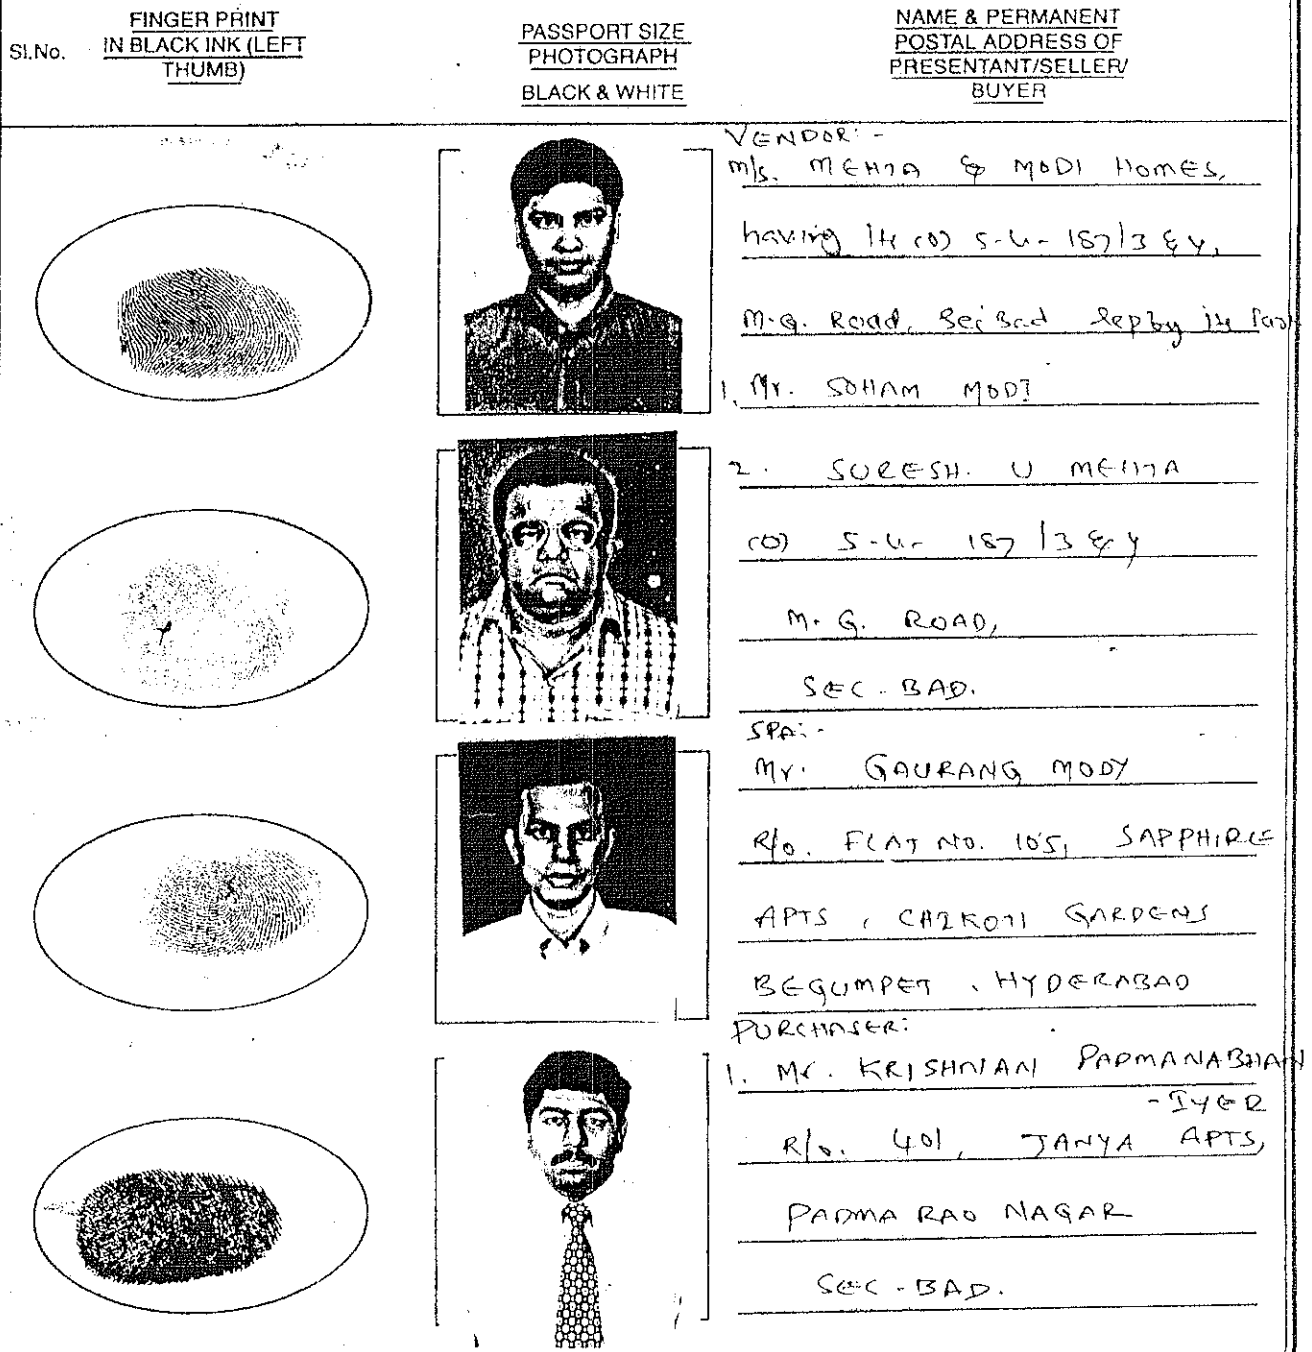 Sl.No.
FINGER PRINT
IN BLACK INK (LEFT
THUMB)
PASSPORT SIZE
PHOTOGRAPH
BLACK & WHITE
NAME & PERMANENT
POSTAL ADDRESS OF
PRESENTANT/SELLER/
BUYER
VENDOR:-
M/s. MEHTA & MODI HOMES,
having its (O) 5-4-187/3 & 4,
M.G. Road, Sec'Bad Rep by its
1. Mr. SOHAM MODI
2. SURESH. U MEHTA
(O) 5-4-187/3 & 4
M.G. ROAD,
SEC-BAD.
SPA:-
Mr. GAURANG MODY
R/o. FLAT NO. 105, SAPPHIRE
APTS, CHIKOTI GARDENS
BEGUMPET, HYDERABAD
PURCHASER:
1. Mr. KRISHNAN PADMANABHAN
-IYER
R/o. 401, JANYA APTS,
PADMA RAO NAGAR
SEC-BAD.